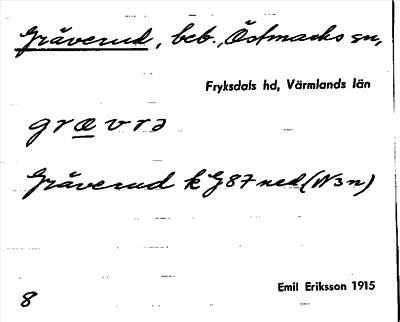 Gräverud, beb., Östmarks sn,
Fryksdals hd, Värmlands län
grævrə
Gräverud k G87 ned (N3n)
Emil Eriksson 1915
8